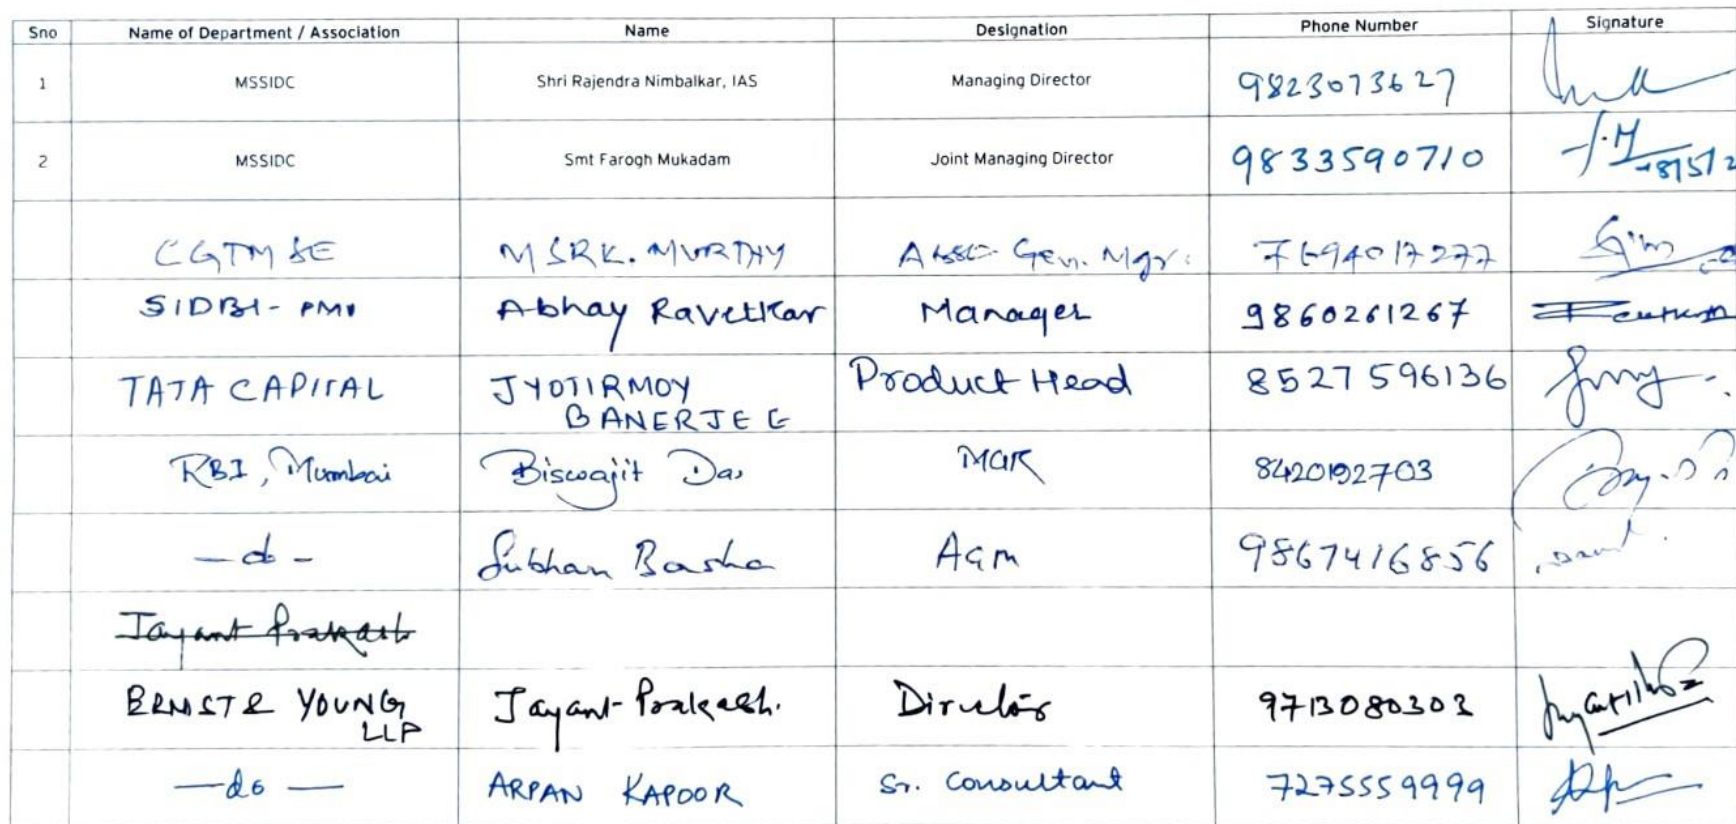 Sno Name of Department / Association Name Designation Phone Number Signature
1 MSSIDC Shri Rajendra Nimbalkar, IAS Managing Director 9823073627
2 MSSIDC Smt Farogh Mukadam Joint Managing Director 9833590710
CGTMSE MSRK. MURTHY Gen. Mgr.
SIDBI - PMU Abhay Ravetkar Manager 9860261267
TATA CAPITAL JYOTIRMOY BANERJEE Product Head 8527596136
RBI, Mumbai Biswajit Das MGR 8420192703
— do - Subhan Basha AGM 9867416856
Jayant Prakash
ERNST & YOUNG LLP Jayant Prakash. Director 9713080303
— do — ARPAN KAPOOR Sr. Consultant 7275559999